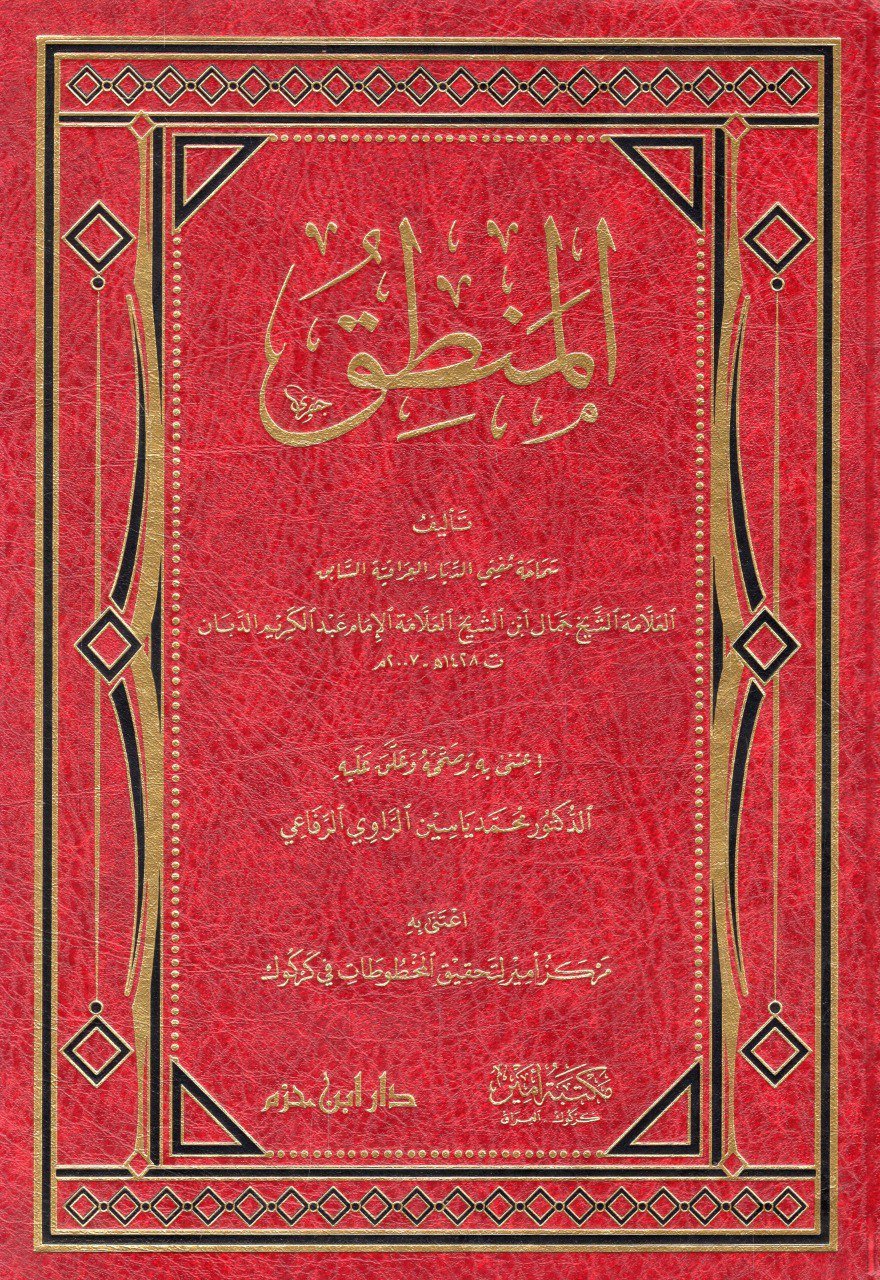 المَنطِقُ
تَأليفُ
سَمَاحَة مُفتِي الدِّيَار العِرَاقيَّة السَّابق
العَلَّامَة الشَّيخ جَمَال ابن الشَّيخ العَلَّامَة الإمَام عَبد الكَرِيم الدَّبَان
ت ١٤٢٨هـ - ٢٠٠٧م
اعتَنى بِهِ وَصَحَّحَهُ وَعَلَّقَ عَلَيهِ
الدُّكتُور مُحَمَّد يَاسِين الرَّاوِي الرِّفَاعِي
اعْتَنَى بِهِ
مَرْكَزُ أمِير لتَحقِيق المَخْطُوطَاتِ في كَركُوك
مكتبة أمير
كركوك - العراق
دار ابن حزم